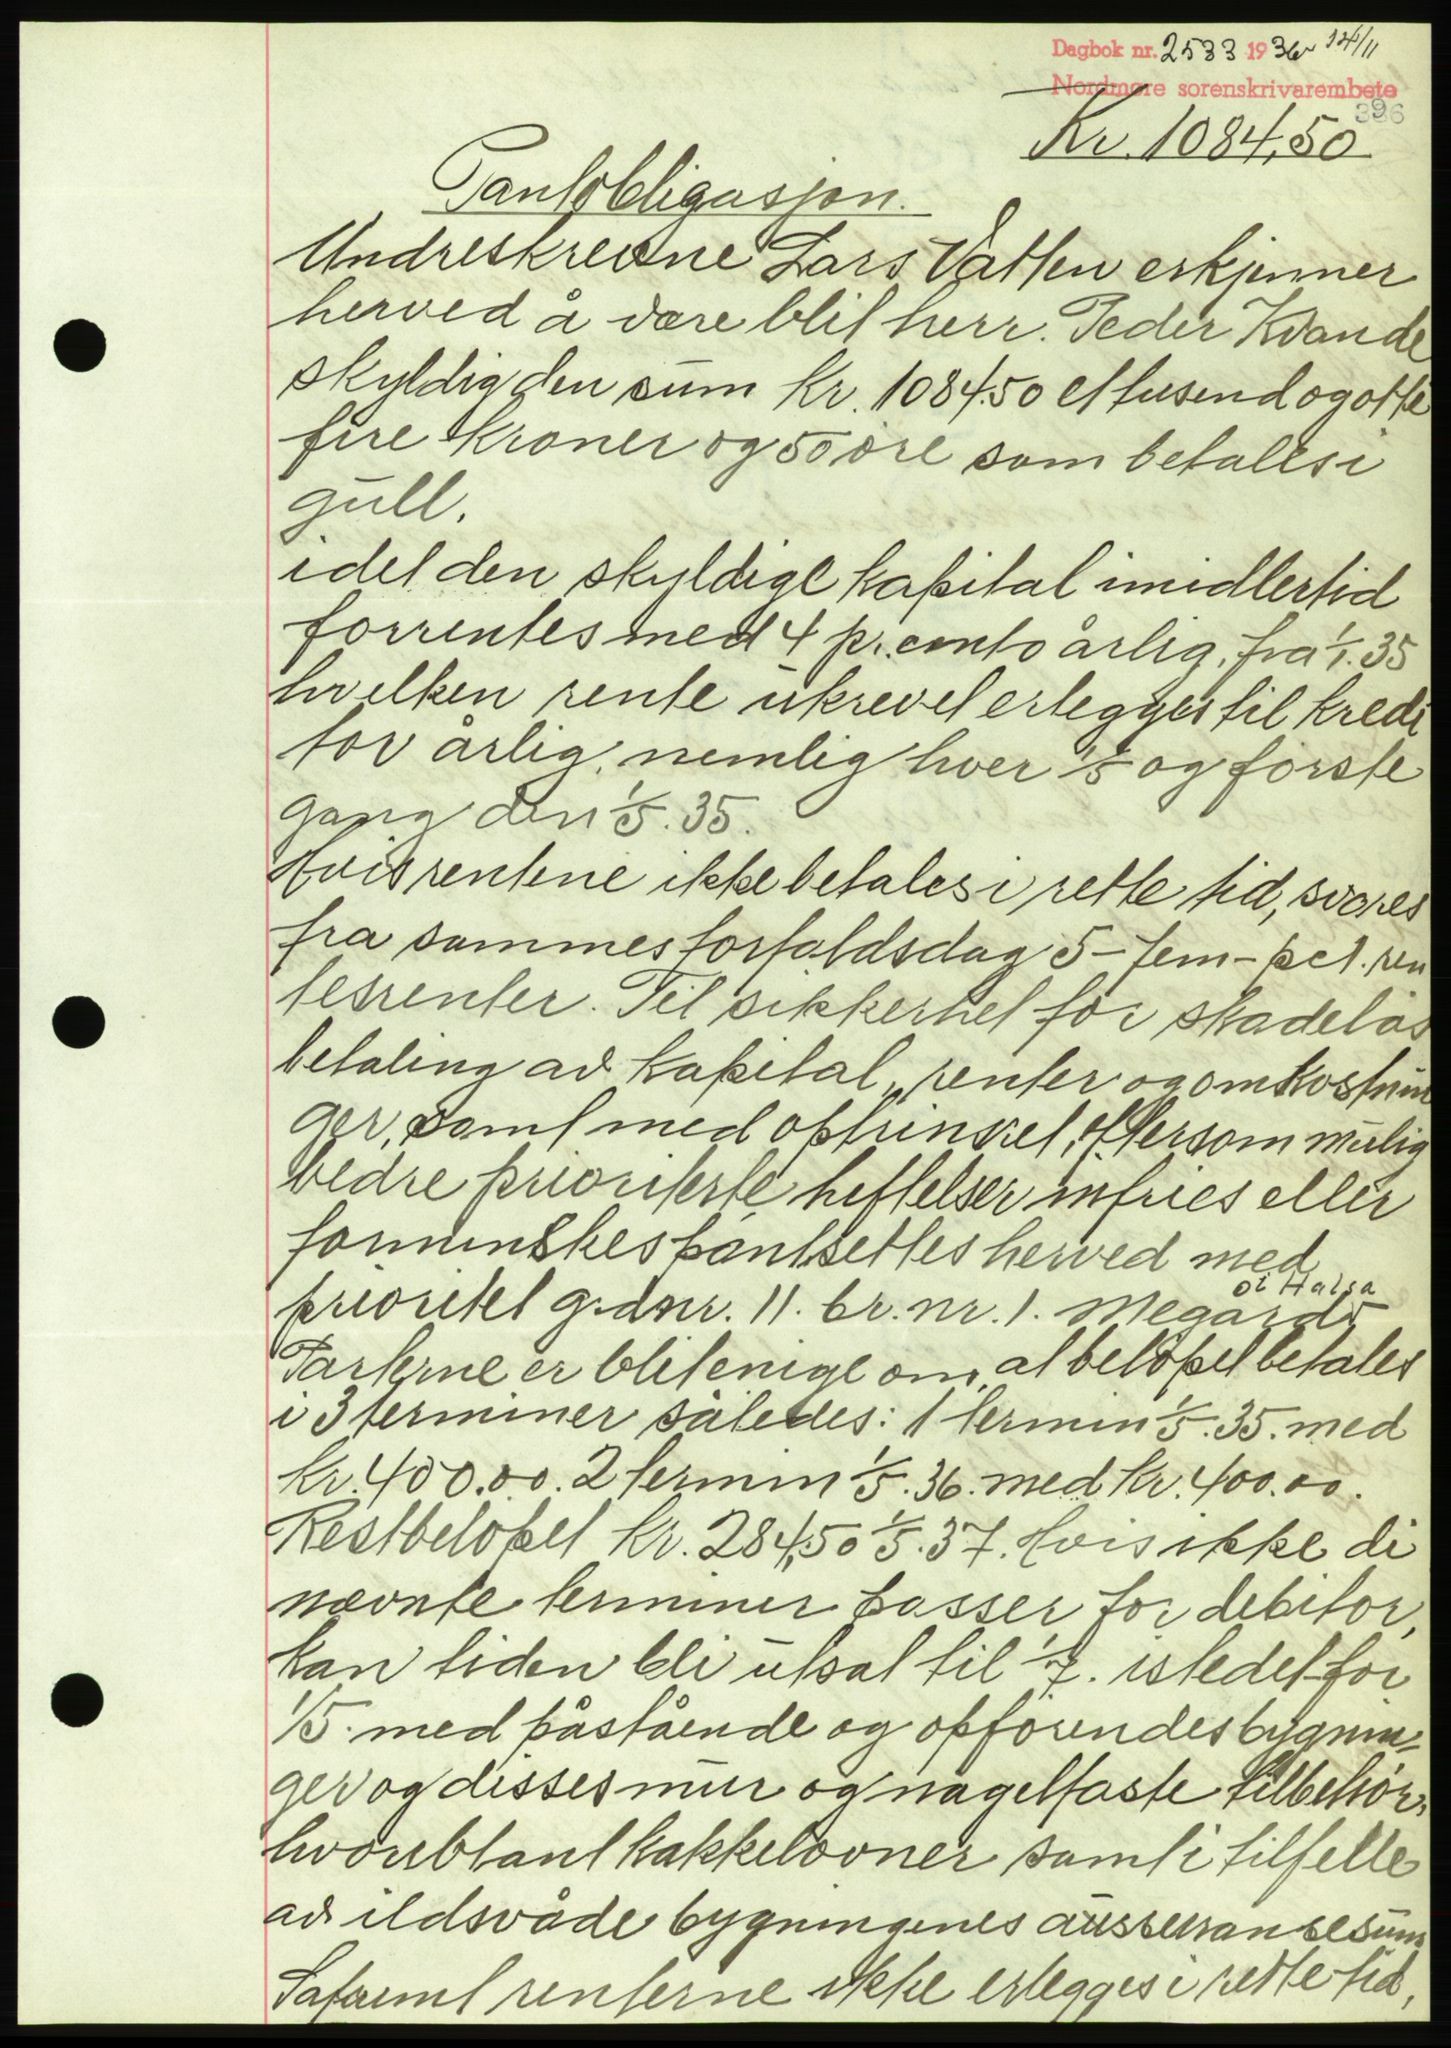 Dagbok nr. 2533 1936 14/11
Nordmøre sorenskrivarembete
396
Kr. 1084,50
Pantobligasjon.
Undreskrevne Lars Våtten erkjenner
herved å være blit herr. Peder Kvande
skyldig den sum Kr. 1084.50 et tusend og otti
fire kroner og 50 øre som betales i
gull.
idet den skyldige kapital imidlertid
forrentes med 4 pr. cento årlig, fra 1/1.35
hvelken rente ukrevet erlegges til kredi
tor årlig, nemlig hver 1/5 og første
gang den 1/5.35.
Hvis rentene ikke betales i rette tid, svares
fra sammes forfaldsdag 5-fem-pct. ren
tesrenter. Til sikkerhet for skadeløs
betaling av kapital, renter og omkostnin
ger, samt med optrinsret, eftersom mulig
bedre prioriterte heftelser infries eller
forminskes pantsettes herved med
prioritet g.dnr. 11. br. nr. 1. Megård i Halsa
Parterne er blit enige om, at beløpet betales
i 3 terminer således: 1 termin 1/5.35. med
kr. 400.00. 2 termin 1/5.36. med kr. 400.00.
Restbeløpet kr. 284,50 1/5.37. Hvis ikke di
nevnte terminer passer for debitor,
kan tiden bli utsat til 1/7. istedet for
1/5. med påstående og opførendes bygnin=
ger og disses mur og nagelfaste tilbehør,
hvoriblant kakkelovner samt i tilfelle
av ildsvåde bygningenes assuransesum
Såfremt renterne ikke erlegges i rette tid,